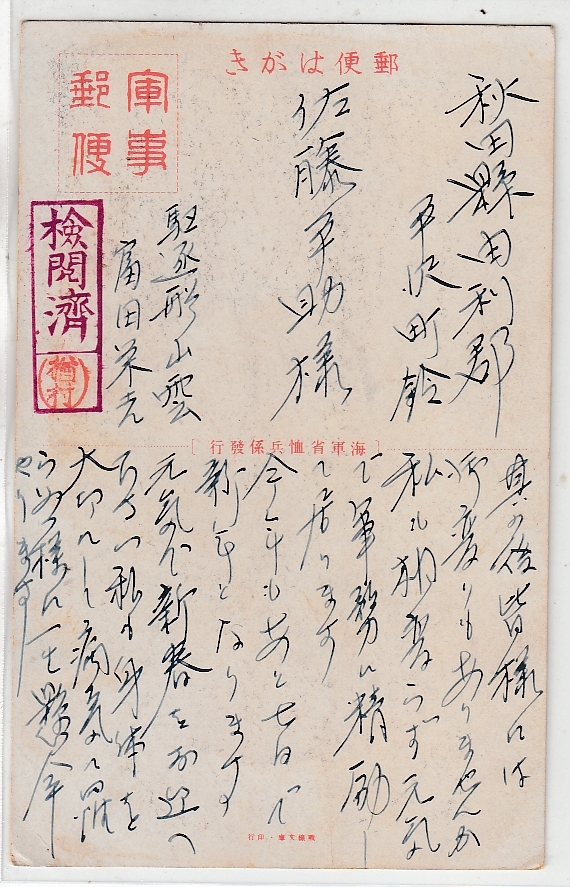 郵便はがき
軍事
郵便
検閲済
楢村
秋田縣由利郡
平沢町鈴
佐藤平助様
駆逐形山雲
富田栄光
海軍省恤兵係發行
其の後皆様には
御変りもありませんか
私も相変らず元気
で軍務に精励し
て居ります
今年もあと七日で
新年となります
元気で新春をお迎へ
下さい私も身体を
大切にし病気に罹
らぬ様に一生懸命
やります